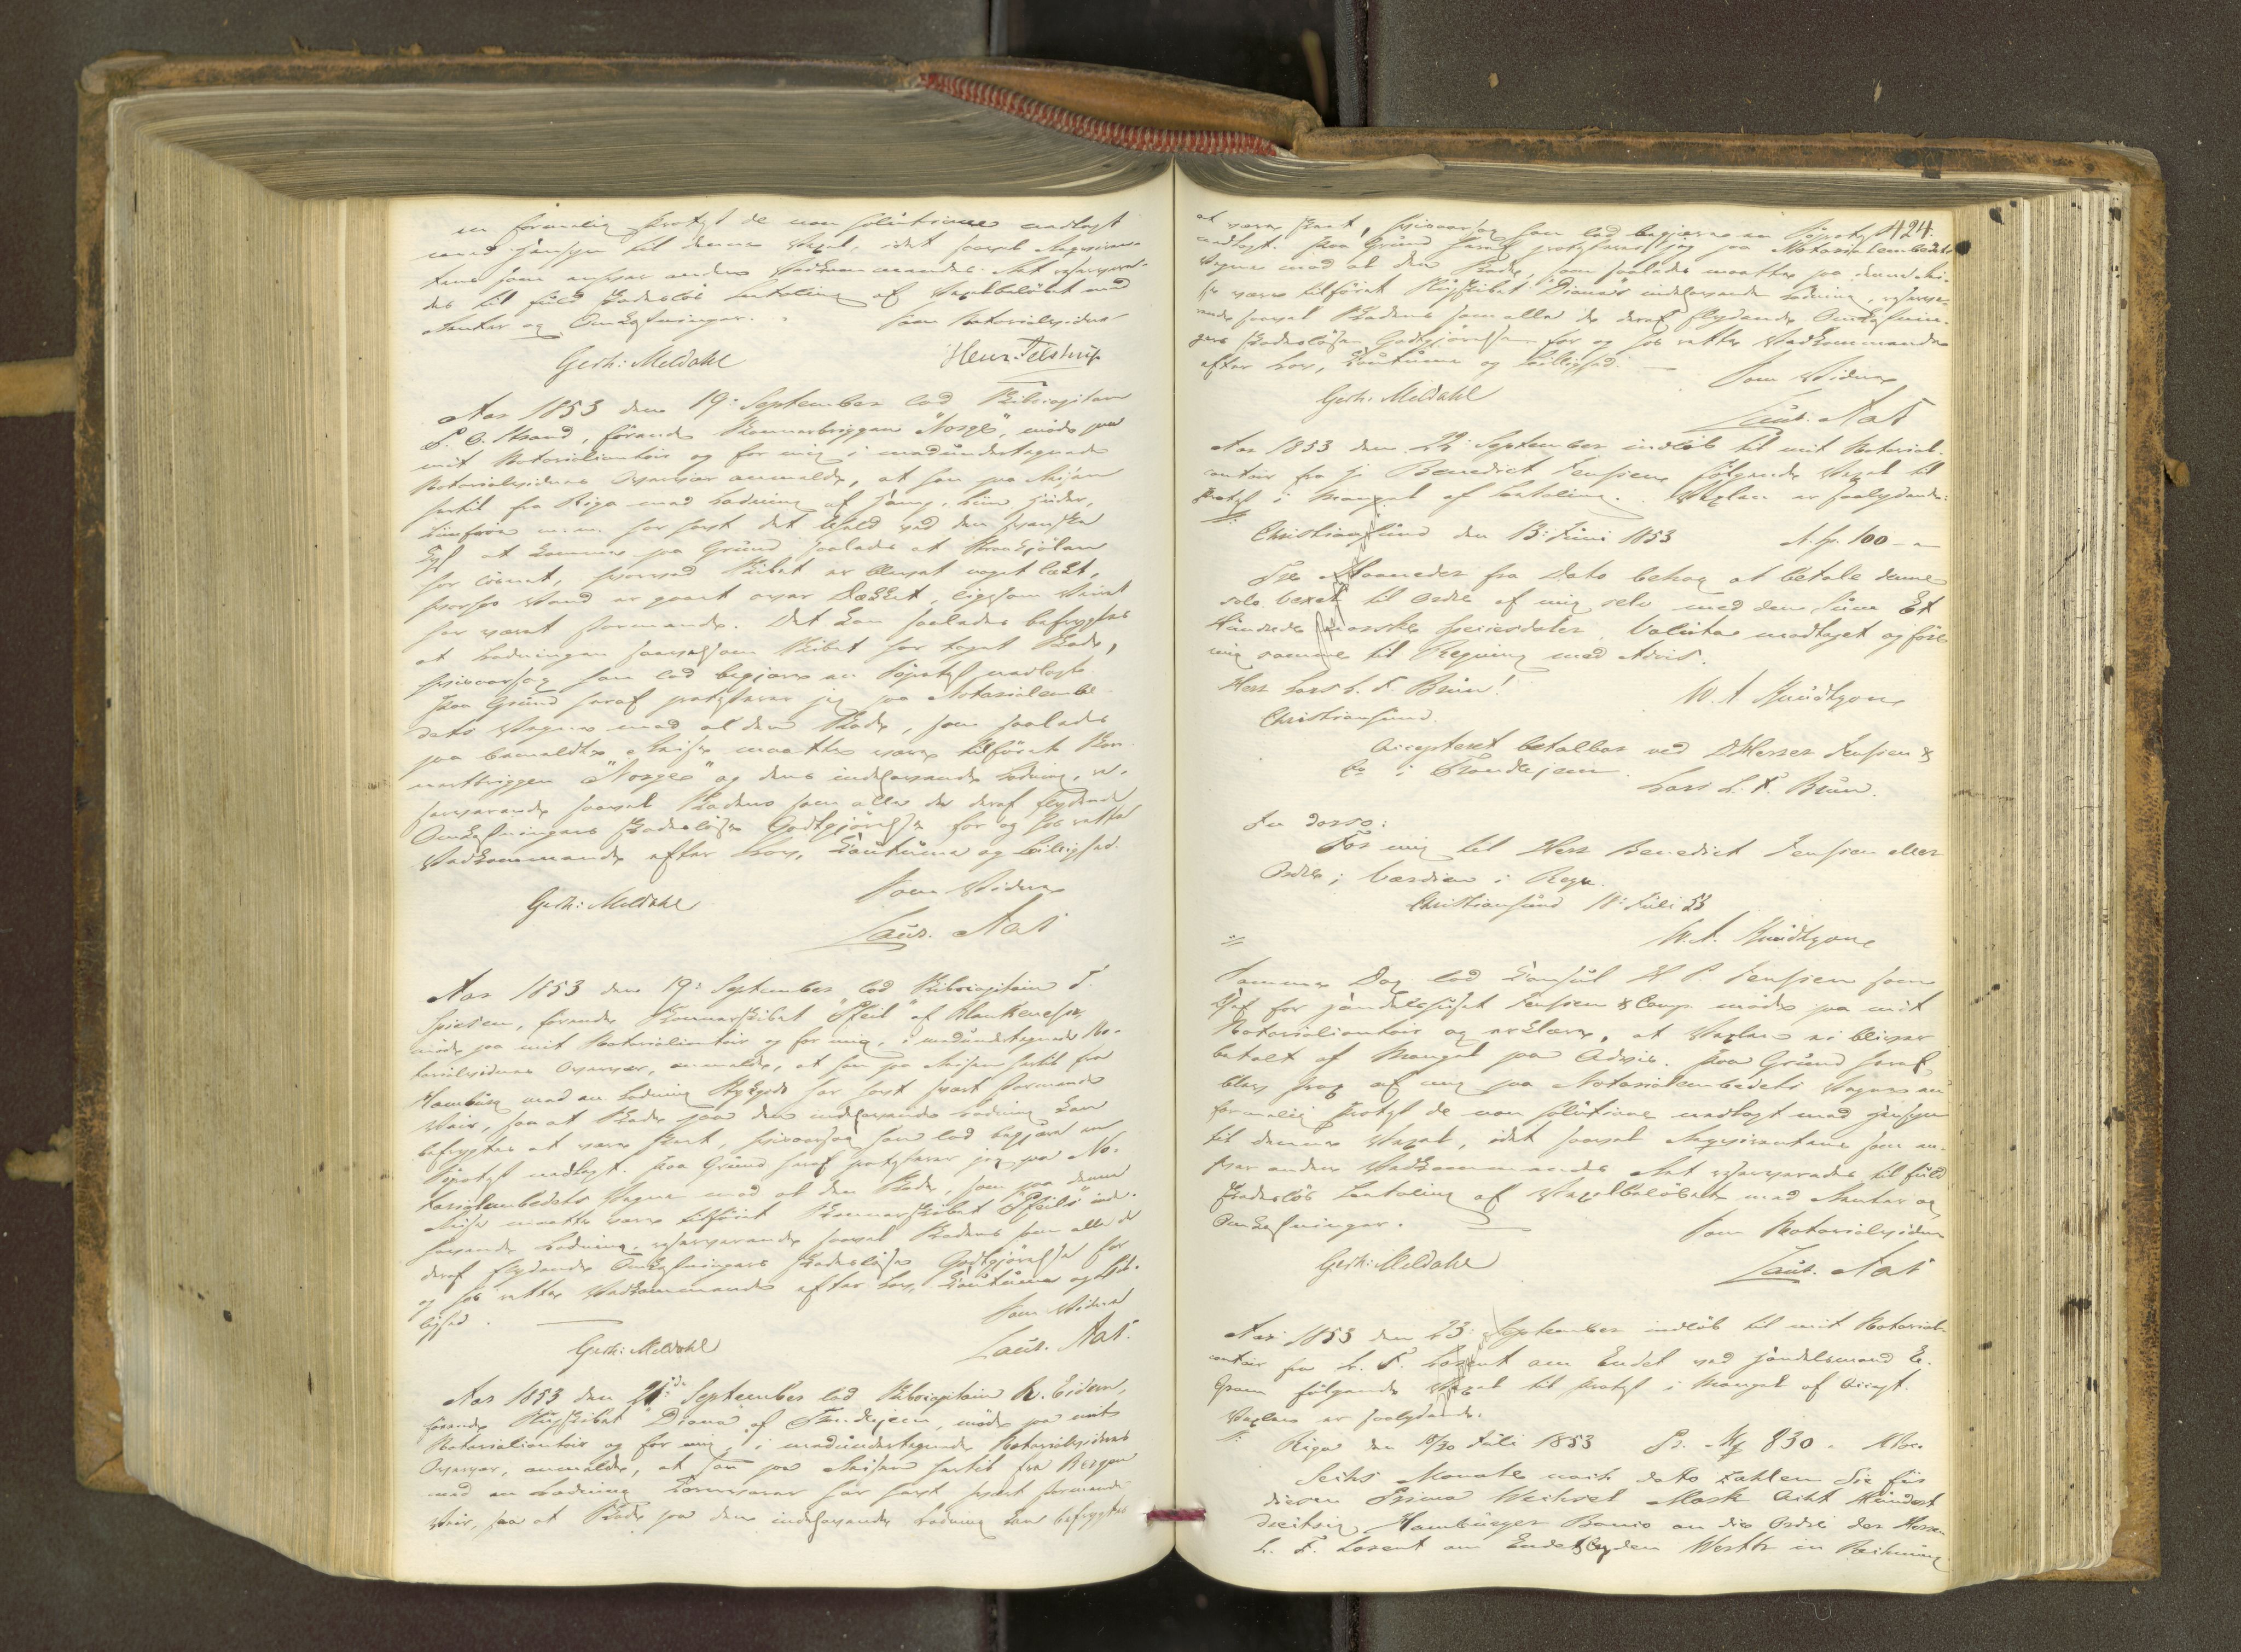 en formelig Protest de non solutione nedlagt
med Hensyn til denne Vexel, idet saavel Requiren-
tens som enhver anden Vedkommendes Ret reserveres
des til fuld skadeslös Betaling af Vexelbelöbet med
Renter og Omkostninger.
Som Notorialvidne
Gerh: Meldahl Henr. Telstrup
Aar 1853 den 19: September lod Skibscapitain
P. O. Strand, förende Skonnertbriggen "Norge", möde paa
mit Notorialcontoir og for mig i medundertegnede
Notorialvidnes Overvær anmelde, at han paa Reisen
hertil fra Riga med Ladning af Hamp, Liin, Huder,
Liinfröe m.m. har havt det Uheld ved den svenske
Kyst at komme paa Grund saaledes at Straakjölen
har lösnet, hvorved Skibet er blevet noget læk,
hvorhos Vand er gaaet over Dækket, ligesom Veiret
har været stormende. Det kan saaledes befrygtes
at Ladningen saavelsom Skibet har taget Skade,
hvisaarsag han lod begjære en Söprotest nedlagt
Paa Grund heraf protesterer jeg paa Notorialembe-
dets Vegne mod al den Skade, som saaledes
paa bemeldte Reise maatte være tilföiet Skon-
nertbriggen "Norge" og dens indehavende Ladning, re-
serverende saavel Skadens som alle de deraf flydende
Omkostningers skadeslöse Godtgjörelse for og hos rette
Vedkommende efter Lov, Coutume og Billighed.
Som Vidne
Gerh: Meldahl
Laur. Aas
Aar 1853 den 19: September lod Skibscapitain J.
Spiesen, förende Skonnertskibet "Pfeil" af Blankenese,
möde paa mit Notorialcontoir og for mig, i medundertegnede No-
torialvidnes Overvær, anmelde, at han paa Reisen hertil fra
Hamburg med en Ladning Stykgods har havt svært stormende
Veir, saa at Skade paa den indehavende Ladning kan
befrygtes at være skeet, hvisaarsag han lod begjære en
Söprotest nedlagt. Paa Grund heraf protesterer jeg paa No-
torialembedets Vegne mod al den Skade, som paa denne
Reise maatte være tilföiet Skonnertskibet "Pfeils" inde-
havende Ladning, reserverende saavel Skadens som alle de
deraf flydende Omkostningers skadeslöse Godtgjörelse for
og hos rette Vedkommende efter Lov, Coutume og Bil-
lighed.
Som Vidne
Gerh: Meldahl Laur. Aas.
Aar 1853 den 21de September lod Skibscapitain R. Eidem,
förende Slupskibet "Diana" af Trondhjem, möde paa mit
Notorialcontoir og for mig, i medundertegnede Notorialvidnes
Overvær, anmelde, at han paa Reisen hertil fra Bergen
med en Ladning Kornvarer har havt svært stormende
Veir, saa at Skade paa den indehavende Ladning kan befrygtes
424.
at være skeet, hvisaarsag han lod begjære en Söprotest
nedlagt. Paa Grund heraf protesterer jeg paa Notorialembedets
Vegne mod al den Skade, som saaledes maatte paa denne Rei-
se være tilföiet Slupskibet "Diana's" indehavende Ladning, reserve-
rende saavel Skadens som alle de deraf flydende Omkostnin-
gers skadeslöse Godtgjörelse for og hos rette Vedkommende
efter Lov, Coutume og Billighed.
Som Vidne
Gerh: Meldahl
Laur. Aas
Aar 1853 den 22: September indlöb til mit Notorial-
contoir fra Hr Benedict Jenssen fölgende Vexel til
Protest i Mangel af Betaling. Vexelen er saalydende:
Christiansund den 13: Juni 1853 100
Tre Maaneder fra Dato behag at betale denne
solo Vexel til Ordre af mig selv med den Sum Et
Hundrede norske Speciesdaler, Valuta modtaget og före
mig samme til Regning med Advis.
Herr Lars L. F. Brun! W. A. Knudtzon
Christiansund.
Accepteret betalbar ved DHerrer Jenssen &
Co i Trondhjem.
Lars L. F. Brun.
In dorso:
For mig til Herr Benedict Jenssen eller
Ordre; Værdien i Regn.
Christiansund 18: Juli 53
W. A. Knudtzon
Samme Dag lod Consul H P. Jenssen som
Chef for Handelshuset Jenssen & Comp. möde paa mit
Notorialcontoir og erklære, at Vexelen ei bliver
betalt af Mangel paa Advis. Paa Grund heraf
blev strax af mig paa Notorialembedets Vegne en
formelig Protest de non solutione nedlagt med Hensyn
til denne Vexel, idet saavel Requirentens som en-
hver anden Vedkommendes Ret reserveredes til fuld
skadeslös Betaling af Vexelbelöbet med Renter og
Omkostninger.
Som Notorialvidne
Gerh: Meldahl Laur. Aas
Aar 1853 den 23: September indlöb til mit Notorial-
contoir fra L. F. Lorent am Ende ved Handelsmand E.
Gram fölgende Vexel til Protest i Mangel af Accept.
Vexelen er saalydende:
Riga den 18/30 Juli 1853 830
Sechs Monate nach dato zahlen Sie für
diesen Prima Wechsel Mark Acht Hundert
dreitzig Hamburger Banco an die Ordre der Herren
L. F. Lorent am Ende & Co, den Werth in Rechnung